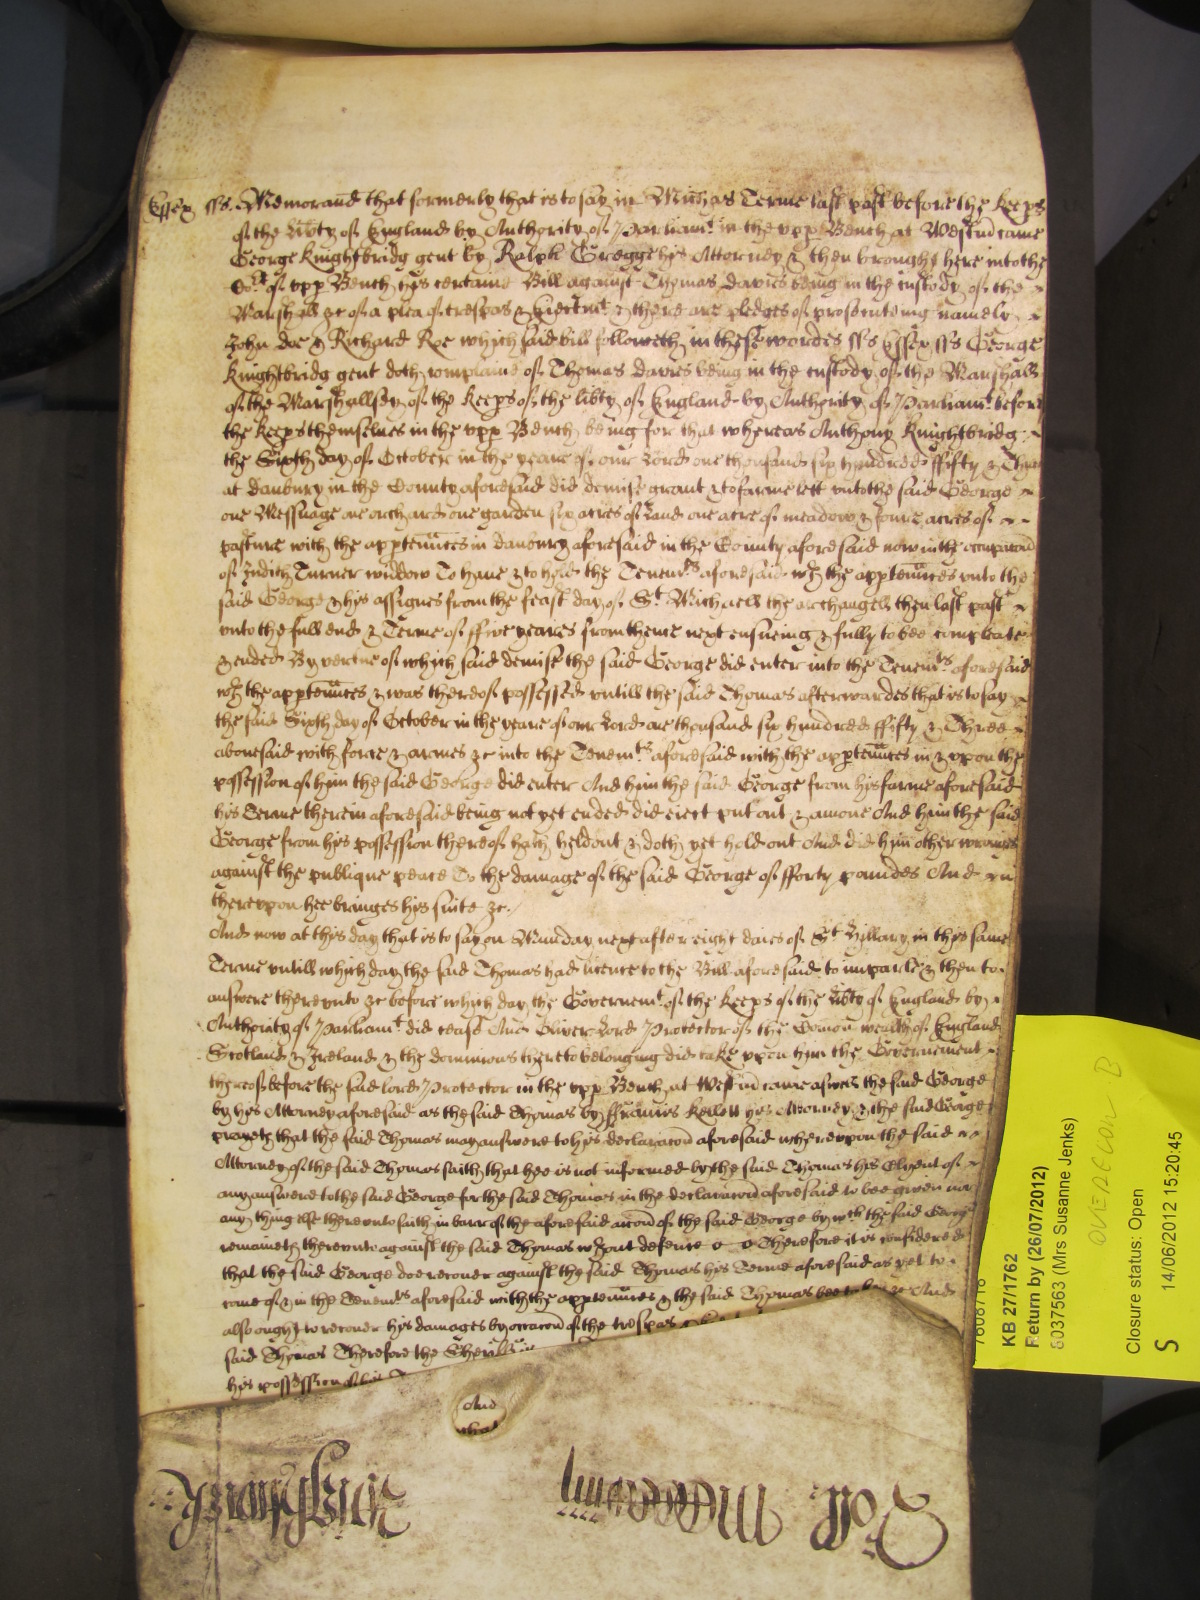 Essex ss. Memorand that formerly that is to say in Michas Terme last past before the Keeps
of the Libty of England by Authority of Parliamt. in the vpp Bench at Westm came
George Knightbridg gent by Ralph Gregge his Attorney & then brought here into the
Cot. of vpp Bench his certaine Bill against Thomas Davies being in the custody of the
Marshall &c of a plea of trespas & Eiectmt & there are pledges of prosecuteing namely
John Doe & Richard Roe which said bill followeth in these wordes ss Essex ss George
Knightbridg gent doth complaine of Thomas Davies being in the custody of the Marshall
of the Marshallsey of the Keeps of the libty of England by Authority of Parliamt. before
the Keeps themselues in the vpp Bench being for that whereas Anthony Knightbridg
the Sixth day of October in the yeare of our Lord one thousand six hundred ffifty &
at danbury in the County aforesaid did demise grant & to farme lett vnto the said George
one Messuage one orchard one garden six acres of Land one acre of meadow & foure acres of
pasture with the apptennces in danbury aforesaid in the County aforesaid now in the occupacon
of Judith Turner widdow To haue & to hold the Tenemts aforesaid wth the apptennces vnto the
said George & his assignes from the feast day of St. Michaell the archangell then last past
vnto the full end & Terme of ffive yeares from thence next ensueing & fully to bee compleate
& ended By vertue of which said demise the said George did enter into the Tenemts. aforesaid
wth the apptennces & was thereof possessed vntill the said Thomas afterwardes that is to say
the said Sixth day of October in the yeare of our Lord one thousand six hundred ffifty & Three
abouesaid with force & armes &c into the Tenemts. aforesaid with the apptennces in & vpon the
possession of him the said George did enter And him the said George from his farme aforesaid
his Terme therein aforesaid being not yet ended did eiect put out & amoue And him the said
George from his possession thereof hath held out & doth yet hold out And did him other wronges
against the publique peace To the damage of the said George of fforty poundes And
therevpon hee bringes his suite &c.
And now at this day that is to say on Munday next after eight daies of St. Hillary in this same
Terme vntill which day the said Thomas had licence to the Bill aforesaid to imparle & then to
answere therevnto &c before which day the Governemt. of the Keeps of the libty of England by
Authority of Parliamt did cease And Oliver Lord Protector of the Comon wealth of England
Scotland & Ireland & the dominions thereto belonging did take vpon him the Governement
thereof before the said lord Protector in the vpp Bench at Westm came aswell the said George
by his Attorney aforesaid as the said Thomas by ffrancis Kellett his Attorney & the said George
prayeth that the said Thomas may answere to his declaracon aforesaid wherevpon the said
Attorney of the said Thomas saith that hee is not informed by the said Thomas his Clyent of
any answere to the said George for the said Thomas in the declaracon aforesaid to bee given nor
any thing else therevnto saith in barr of the aforesaid accon of the said George by wch the said George
remaineth therevnto against the said Thomas wthout defence Therefore it is considered
that the said George doe recouer against the said Thomas his Terme aforesaid as yet to
come of & in the Tenemts aforesaid with the apptennces & the said Thomas bee &c And
also ought to recouer his damages by occacon of the trespas
said Thomas Therefore the
his possession of his
And
KB 27/1762
Return by (26/07/2012)
6037563 (Mrs Susanne Jenks)
Closure status: Open
S 14/06/2012 15:20:45